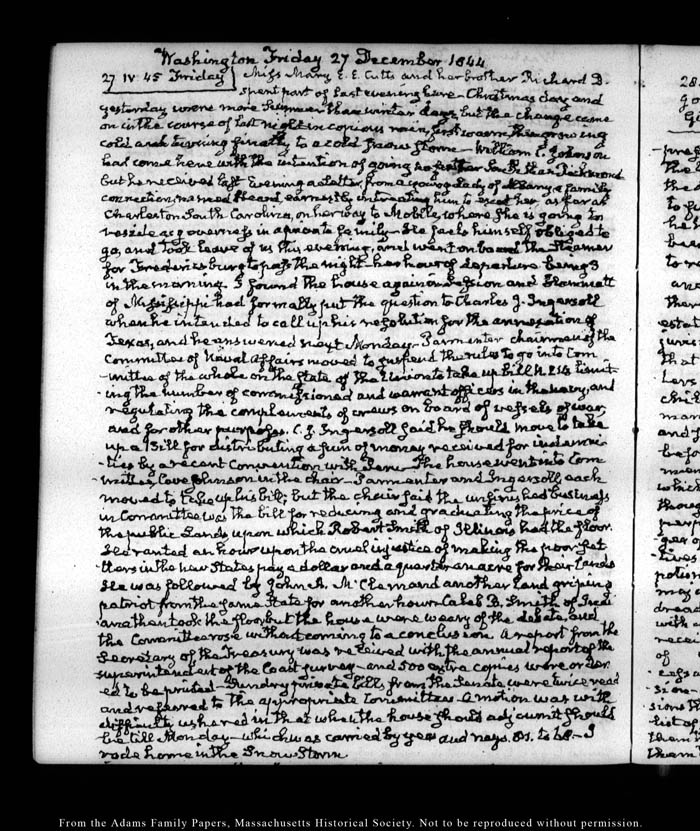 Washington Friday 27 December 1844
27 IV 45 Friday} Miss Mary E. E. Cutts and her brother Richard D.
spent part of last evening here - Christmas day and
yesterday were more Summer than winter days, but the change came
on in the course of last night in copious rain, first warm then growing
cold and turning finally to a cold Snow Storm - William C. Johnson
had come here with the intention of going no further South than Richmond
but he received last Evening a Letter from a young Lady of a family
connection, named Heard earnestly intreating him to escort her, as far as
Charleston South Carolina, on her way to Mobile, where she is going to
reside as governess in a private family - He feels himself obliged to
go, and took leave of us this evening, and went on board the Steamer
for Fredericksburg to pass the night - her hour of departure being 3
in the morning. I found the house again in Session and Hammett
of Mississippi had formally put the question to Charles J. Ingersoll
when he intended to call up his resolution for the annexation of
Texas, and he answered next Monday - Parmenter chairman of the
Committee of Naval Affairs moved to suspend the rules to go into Com
-mittee of the whole on the State of the Union to take up bill N. limit-
ing the number of commissioned and warrant officers in the navy, and
regulating the complements of crews on board of vessels of war,
and for other purposes. C. J. Ingersoll said he should move to take
up a Bill for distributing a sum of money received for indemni
-ties by a recent Convention with Peru. The house went into Com
-mittee, Cave Johnson in the chair - Parmenter and Ingersoll each
moved to take up his bill; but the chair said the unfinished business
in Committee was the bill for reducing and graduating the price of
the public Lands upon which Robert Smith of Illinois had the floor.
He ranted an hour upon the cruel injustice of making the poor Set
-tlers in the new States pay a dollar and a quarter an acre for their Lands
He was followed by John A. McClernand another Land griping
patriot from the same State for another hour. Caleb B. Smith of Indi
-ana then took the floor but the house were weary of the debate, and
the Committee rose without coming to a conclusion. A report from the
Secretary of the Treasury was received with the annual report of the
superintendent of the Coast survey - and 500 extra copies were order
-ed to be printed - Sundry private bills from the Senate were twice read
and referred to the appropriate Committees. A motion was with
difficulty ushered in that when the house should adjourn it should
be till Monday - which was carried by yeas and nays. 81. to - I
rode home in the Snow Storm
28.
From the Adams Family Papers, Massachusetts Historical Society. Not to be reproduced without permission.